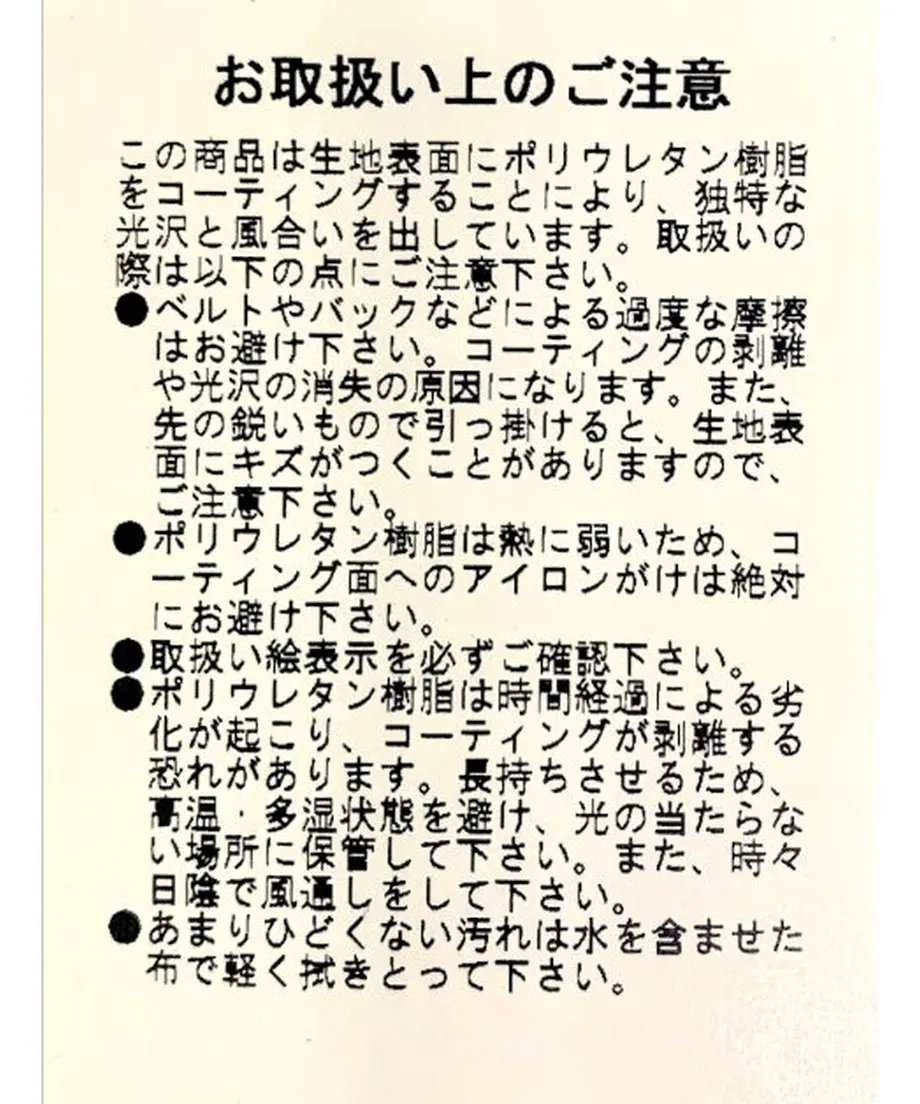 お取扱い上のご注意
この商品は生地表面にポリウレタン樹脂
をコーティングすることにより、独特な
光沢と風合いを出しています。取扱いの
際は以下の点にご注意下さい。
●ベルトやバックなどによる過度な摩擦
はお避け下さい。コーティングの剥離
や光沢の消失の原因になります。また、
先の鋭いもので引っ掛けると、生地表
面にキズがつくことがありますので、
ご注意下さい。
●ポリウレタン樹脂は熱に弱いため、コ
ーティング面へのアイロンがけは絶対
にお避け下さい。
●取扱い絵表示を必ずご確認下さい。
●ポリウレタン樹脂は時間経過による劣
化が起こり、コーティングが剥離する
恐れがあります。長持ちさせるため、
高温・多湿状態を避け、光の当たらな
い場所に保管して下さい。また、時々
日陰で風通しをして下さい。
●あまりひどくない汚れは水を含ませた
布で軽く拭きとって下さい。